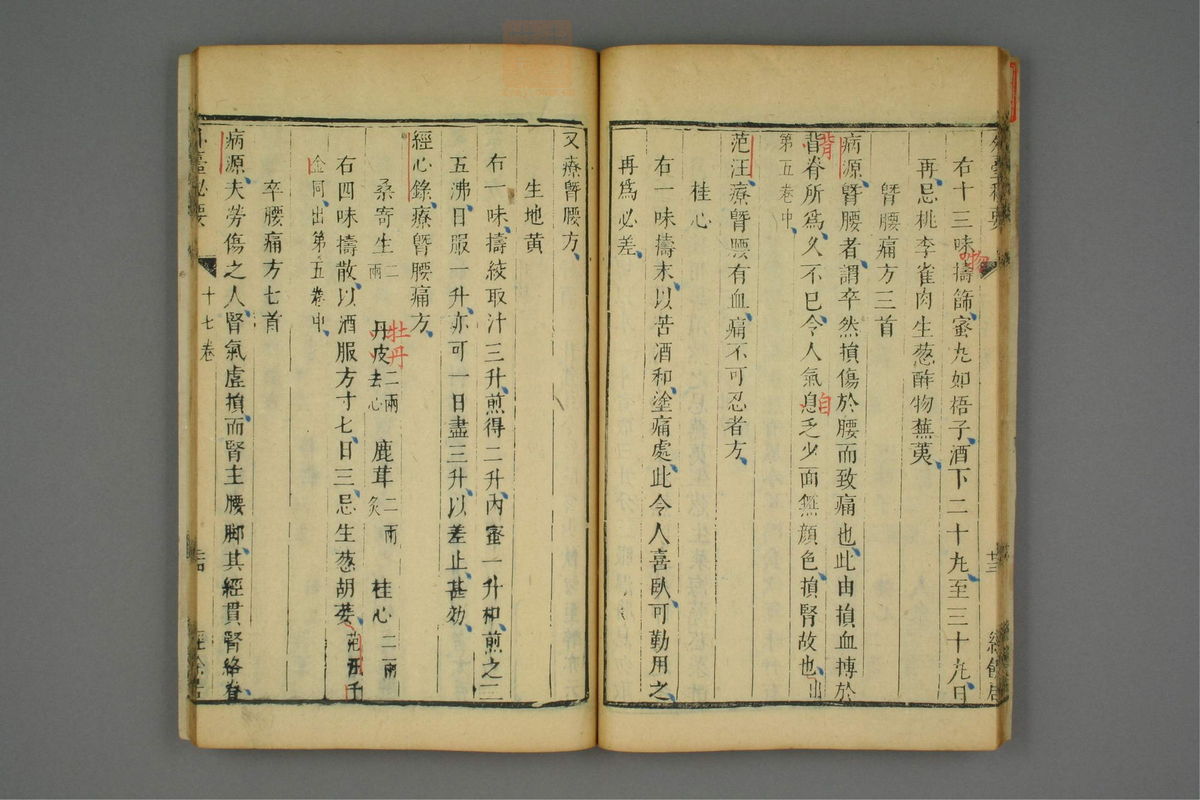 外臺秘要
廿三
經餘居
右十三味擣篩蜜丸如梧子酒下二十丸至三十丸日
物
再忌桃李雀肉生葱酢物蕪荑
䐴腰痛方三首
病源䐴腰者謂卒然損傷於腰而致痛也此由損血搏於
背脊所爲久不已令人氣息乏少面無顏色損腎故也出
背
自
第五卷中
范汪療䐴腰有血痛不可忍者方
桂心
右一味擣末以苦酒和塗痛處此令人喜臥可勤用之
再爲必差
又療䐴腰方
生地黄
右一味擣絞取汁三升煎得二升内蜜一升和煎之三
五沸日服一升亦可一日盡三升以差止甚効
經心錄療䐴腰痛方
桑寄生二兩 丹皮二兩去心 鹿茸二兩炙 桂心二兩
牡丹
右四味擣散以酒服方寸七日三忌生葱胡荽范汪千
金同出第五卷中
卒腰痛方七首
病源夫勞傷之人腎氣虛損而腎主腰脚其經貫腎絡脊
外臺秘要
十七卷
廿四
經餘居